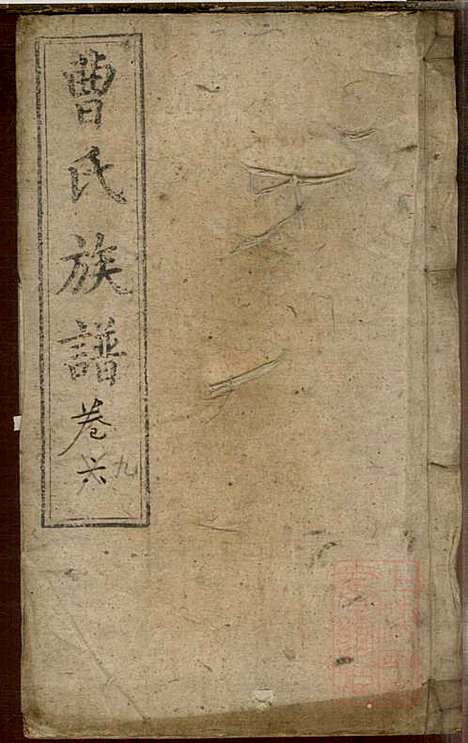 曹氏族譜
卷六
九